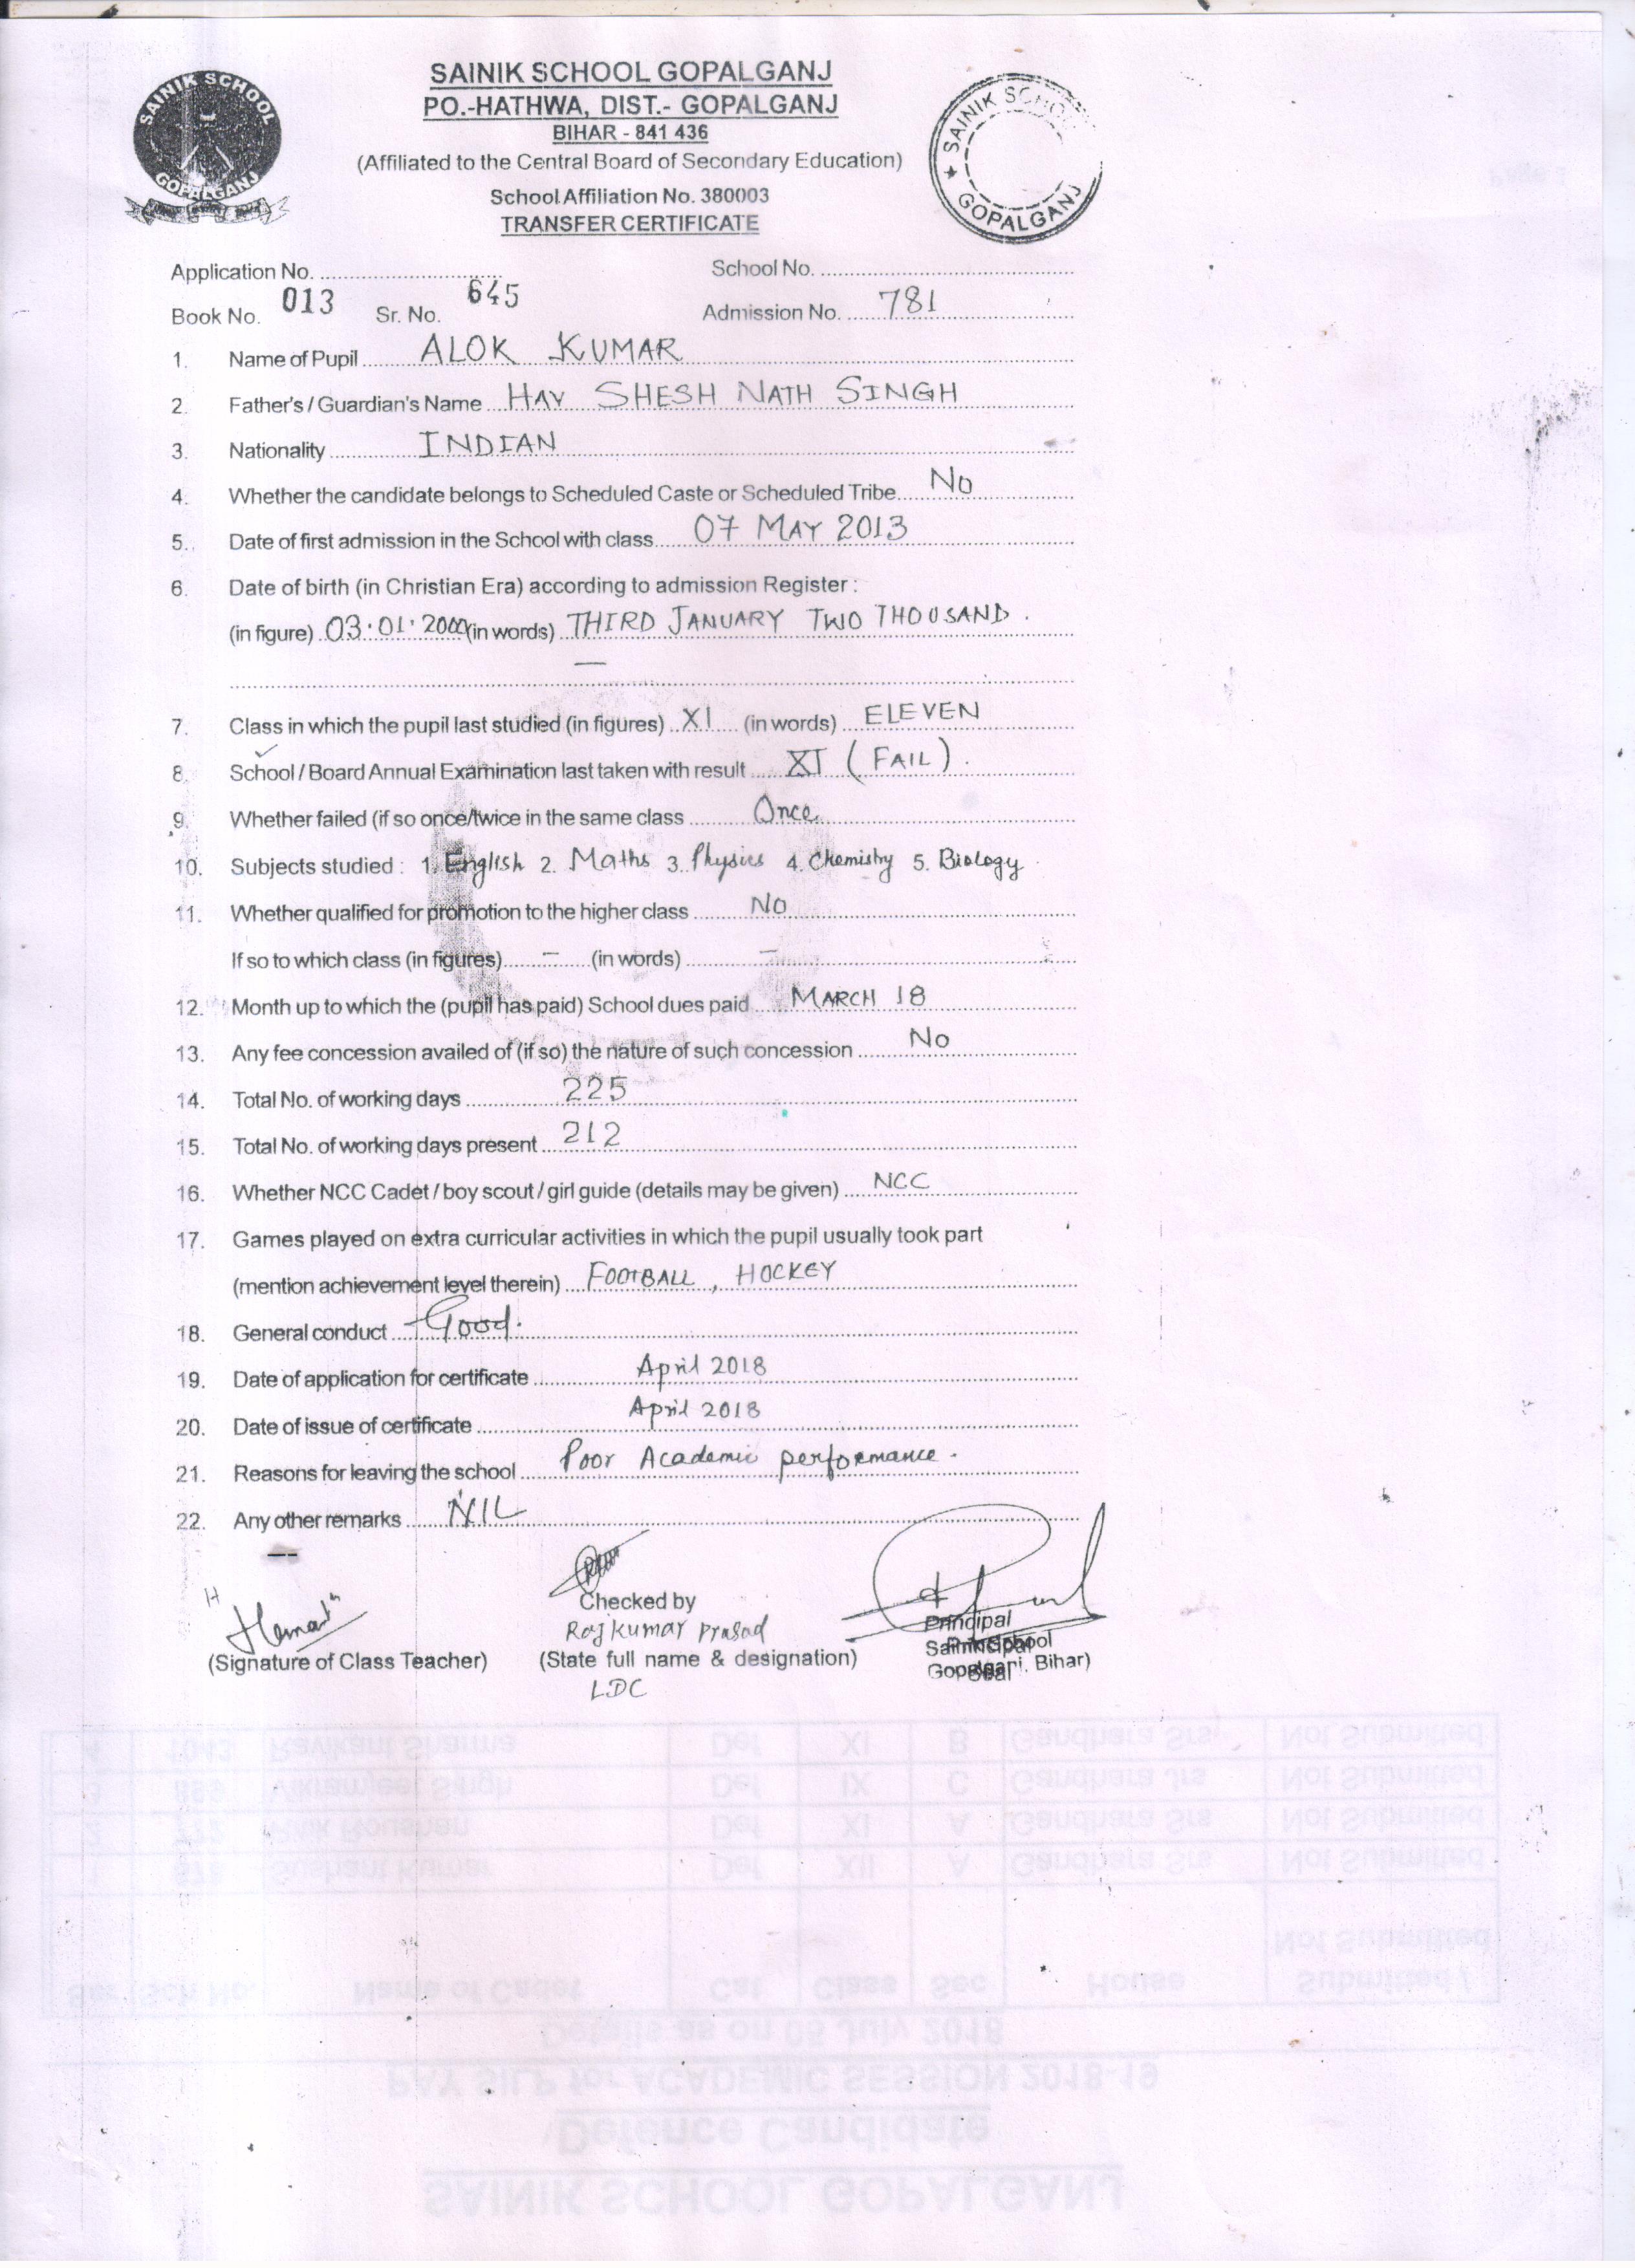 SAINIK SCHOOL GOPALGANJ
PO.-HATHWA, DIST.- GOPALGANJ
BIHAR - 841 436
(Affiliated to the Central Board of Secondary Education)
School Affiliation No. 380003
TRANSFER CERTIFICATE
SAINIK SCHOOL
GOPALGANJ
SAINIK SCHOOL
★ GOPALGANJ
Application No. School No.
Book No. 013 Sr. No. 645 Admission No. 781
1. Name of Pupil ALOK KUMAR
2. Father's / Guardian's Name HAV SHESH NATH SINGH
3. Nationality INDIAN
4. Whether the candidate belongs to Scheduled Caste or Scheduled Tribe No
5. Date of first admission in the School with class 07 MAY 2013
6. Date of birth (in Christian Era) according to admission Register :
(in figure) 03.01.2000 (in words) THIRD JANUARY TWO THOUSAND.
—
7. Class in which the pupil last studied (in figures) XI (in words) ELEVEN
8. School / Board Annual Examination last taken with result XI (FAIL).
9. Whether failed (if so once/twice in the same class Once
10. Subjects studied : 1. English 2. Maths 3. Physics 4. Chemistry 5. Biology
11. Whether qualified for promotion to the higher class No
If so to which class (in figures) – (in words) –
12. Month up to which the (pupil has paid) School dues paid MARCH 18
13. Any fee concession availed of (if so) the nature of such concession No
14. Total No. of working days 225
15. Total No. of working days present 212
16. Whether NCC Cadet / boy scout / girl guide (details may be given) NCC
17. Games played on extra curricular activities in which the pupil usually took part
(mention achievement level therein) FOOTBALL, HOCKEY
18. General conduct Good.
19. Date of application for certificate April 2018
20. Date of issue of certificate April 2018
21. Reasons for leaving the school Poor Academic performance.
22. Any other remarks NIL
Checked by
Rajkumar Prasad
(Signature of Class Teacher) (State full name & designation)
LDC
Principal
Sainik School
Gopalganj, Bihar)
Principal
Seal
SAINIK SCHOOL GOPALGANJ
Defence Candidate
PAY SILP for ACADEMIC SESSION 2018-19
Details as on 05 July 2018
Name of Cadet Cat Class Sec House Submitted / Not Submitted
Sushant Kumar Def XII A Gandhara Srs Not Submitted
Roushan Def XI A Gandhara Srs Not Submitted
3 Vikramjeet Singh Def IX C Gandhara Jrs Not Submitted
4 1043 Ravikant Sharma Def XI B Gandhara Srs Not Submitted